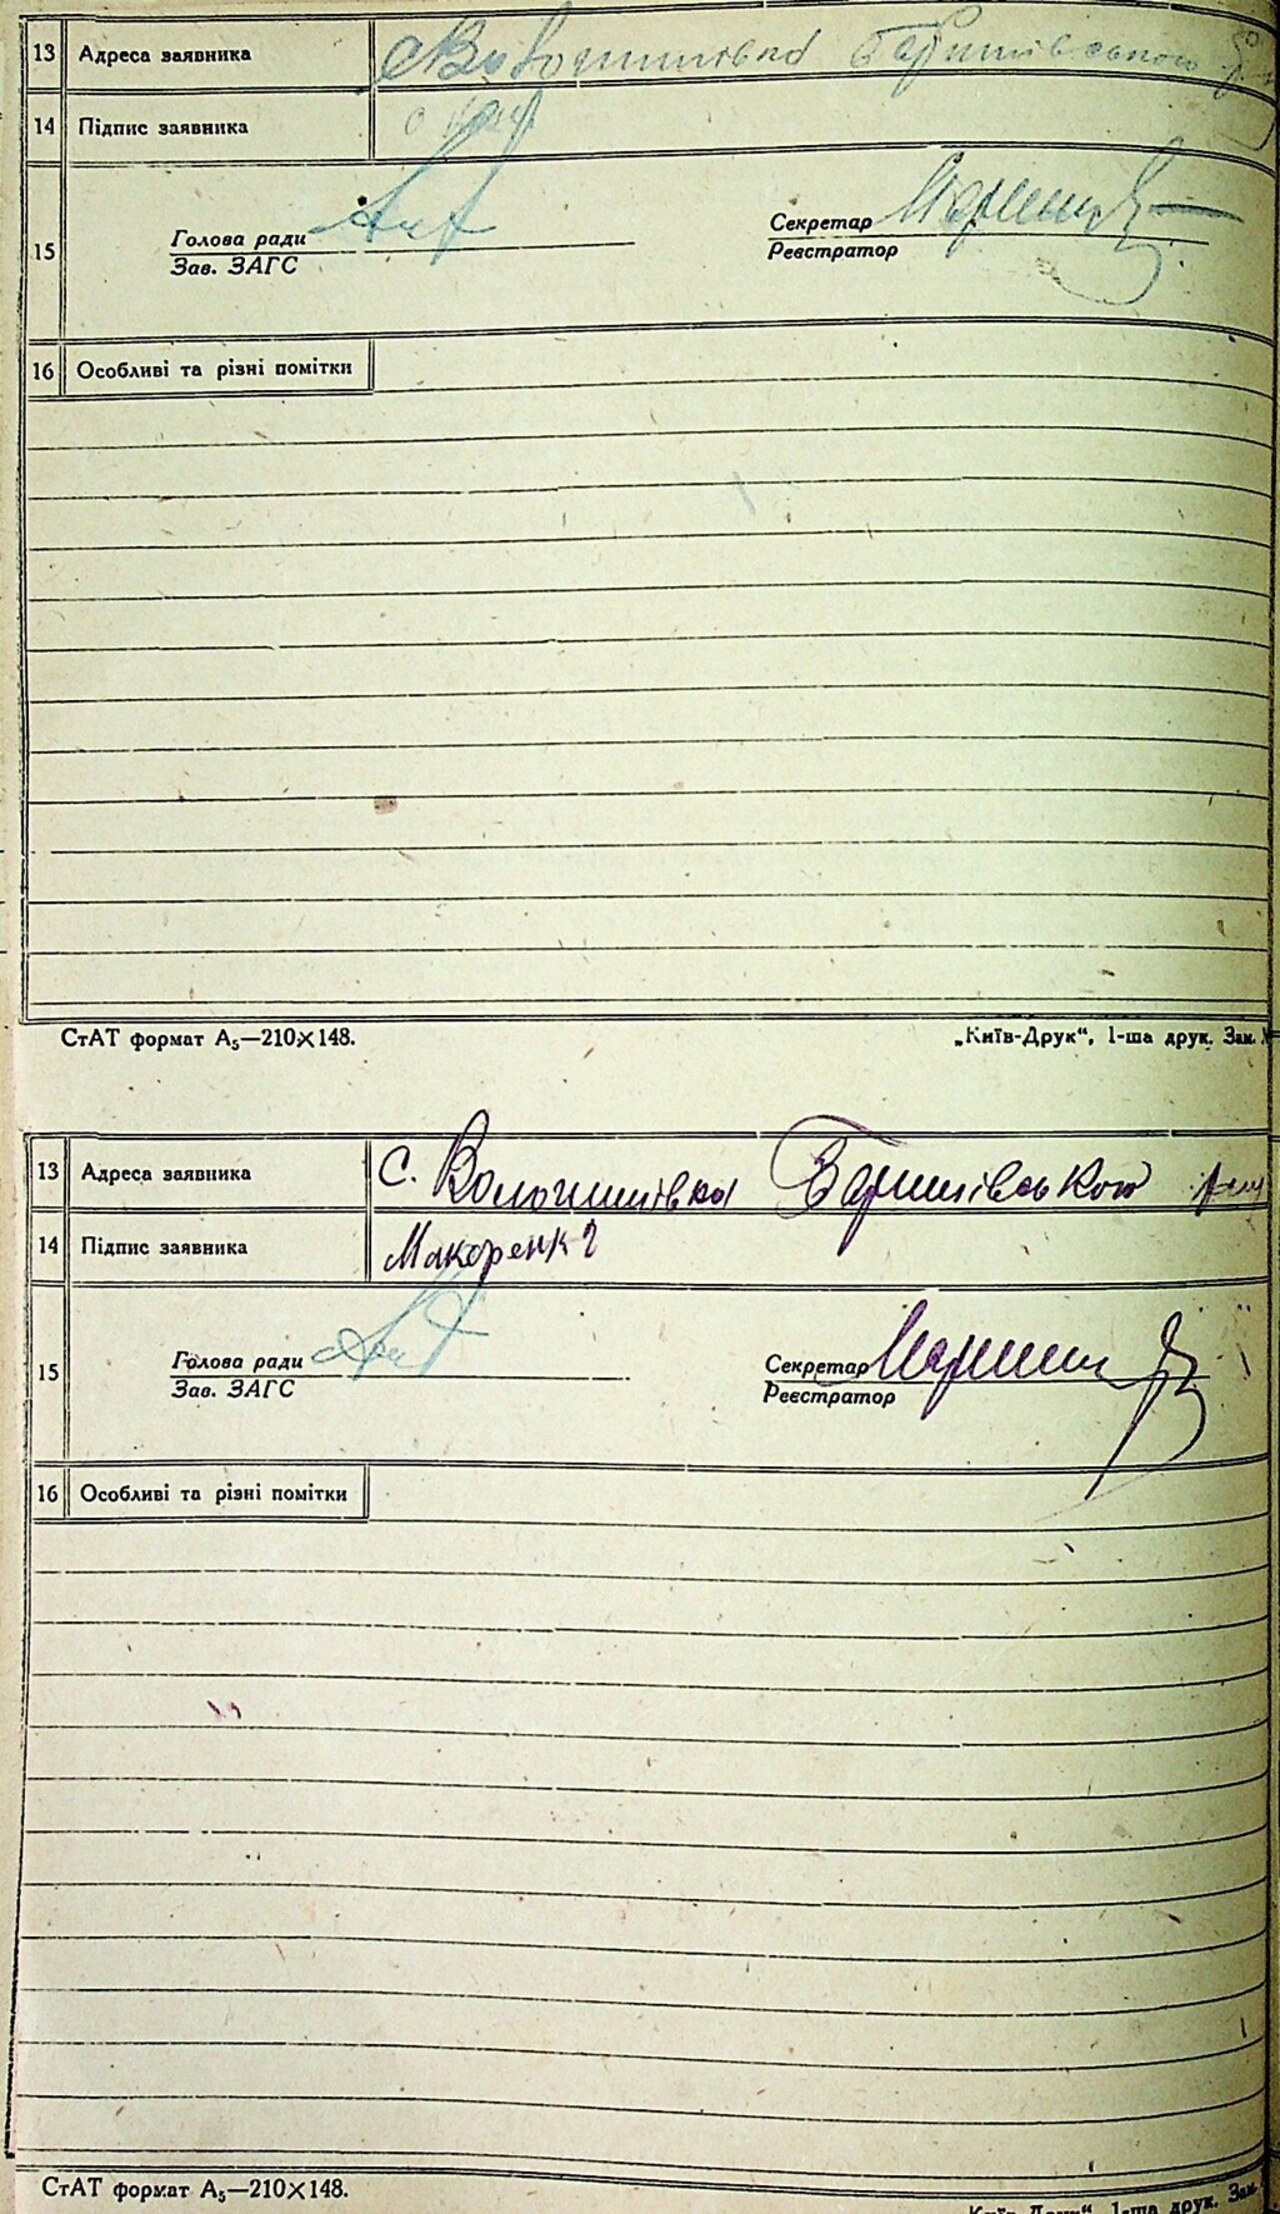 13 Адреса заявника
14 Підпис заявника
15 Голова ради Секретар
Зав. ЗАГС Реєстратор
16 Особливі та різні помітки
СтАТ формат А5—210×148. „Київ-Друк“, 1-ша друк. Зам.
13 Адреса заявника с. Волошинівка Баришівського
14 Підпис заявника Макаренк
15 Голова ради Секретар
Зав. ЗАГС Реєстратор
16 Особливі та різні помітки
СтАТ формат А5—210×148. 1-ша друк. Зам.